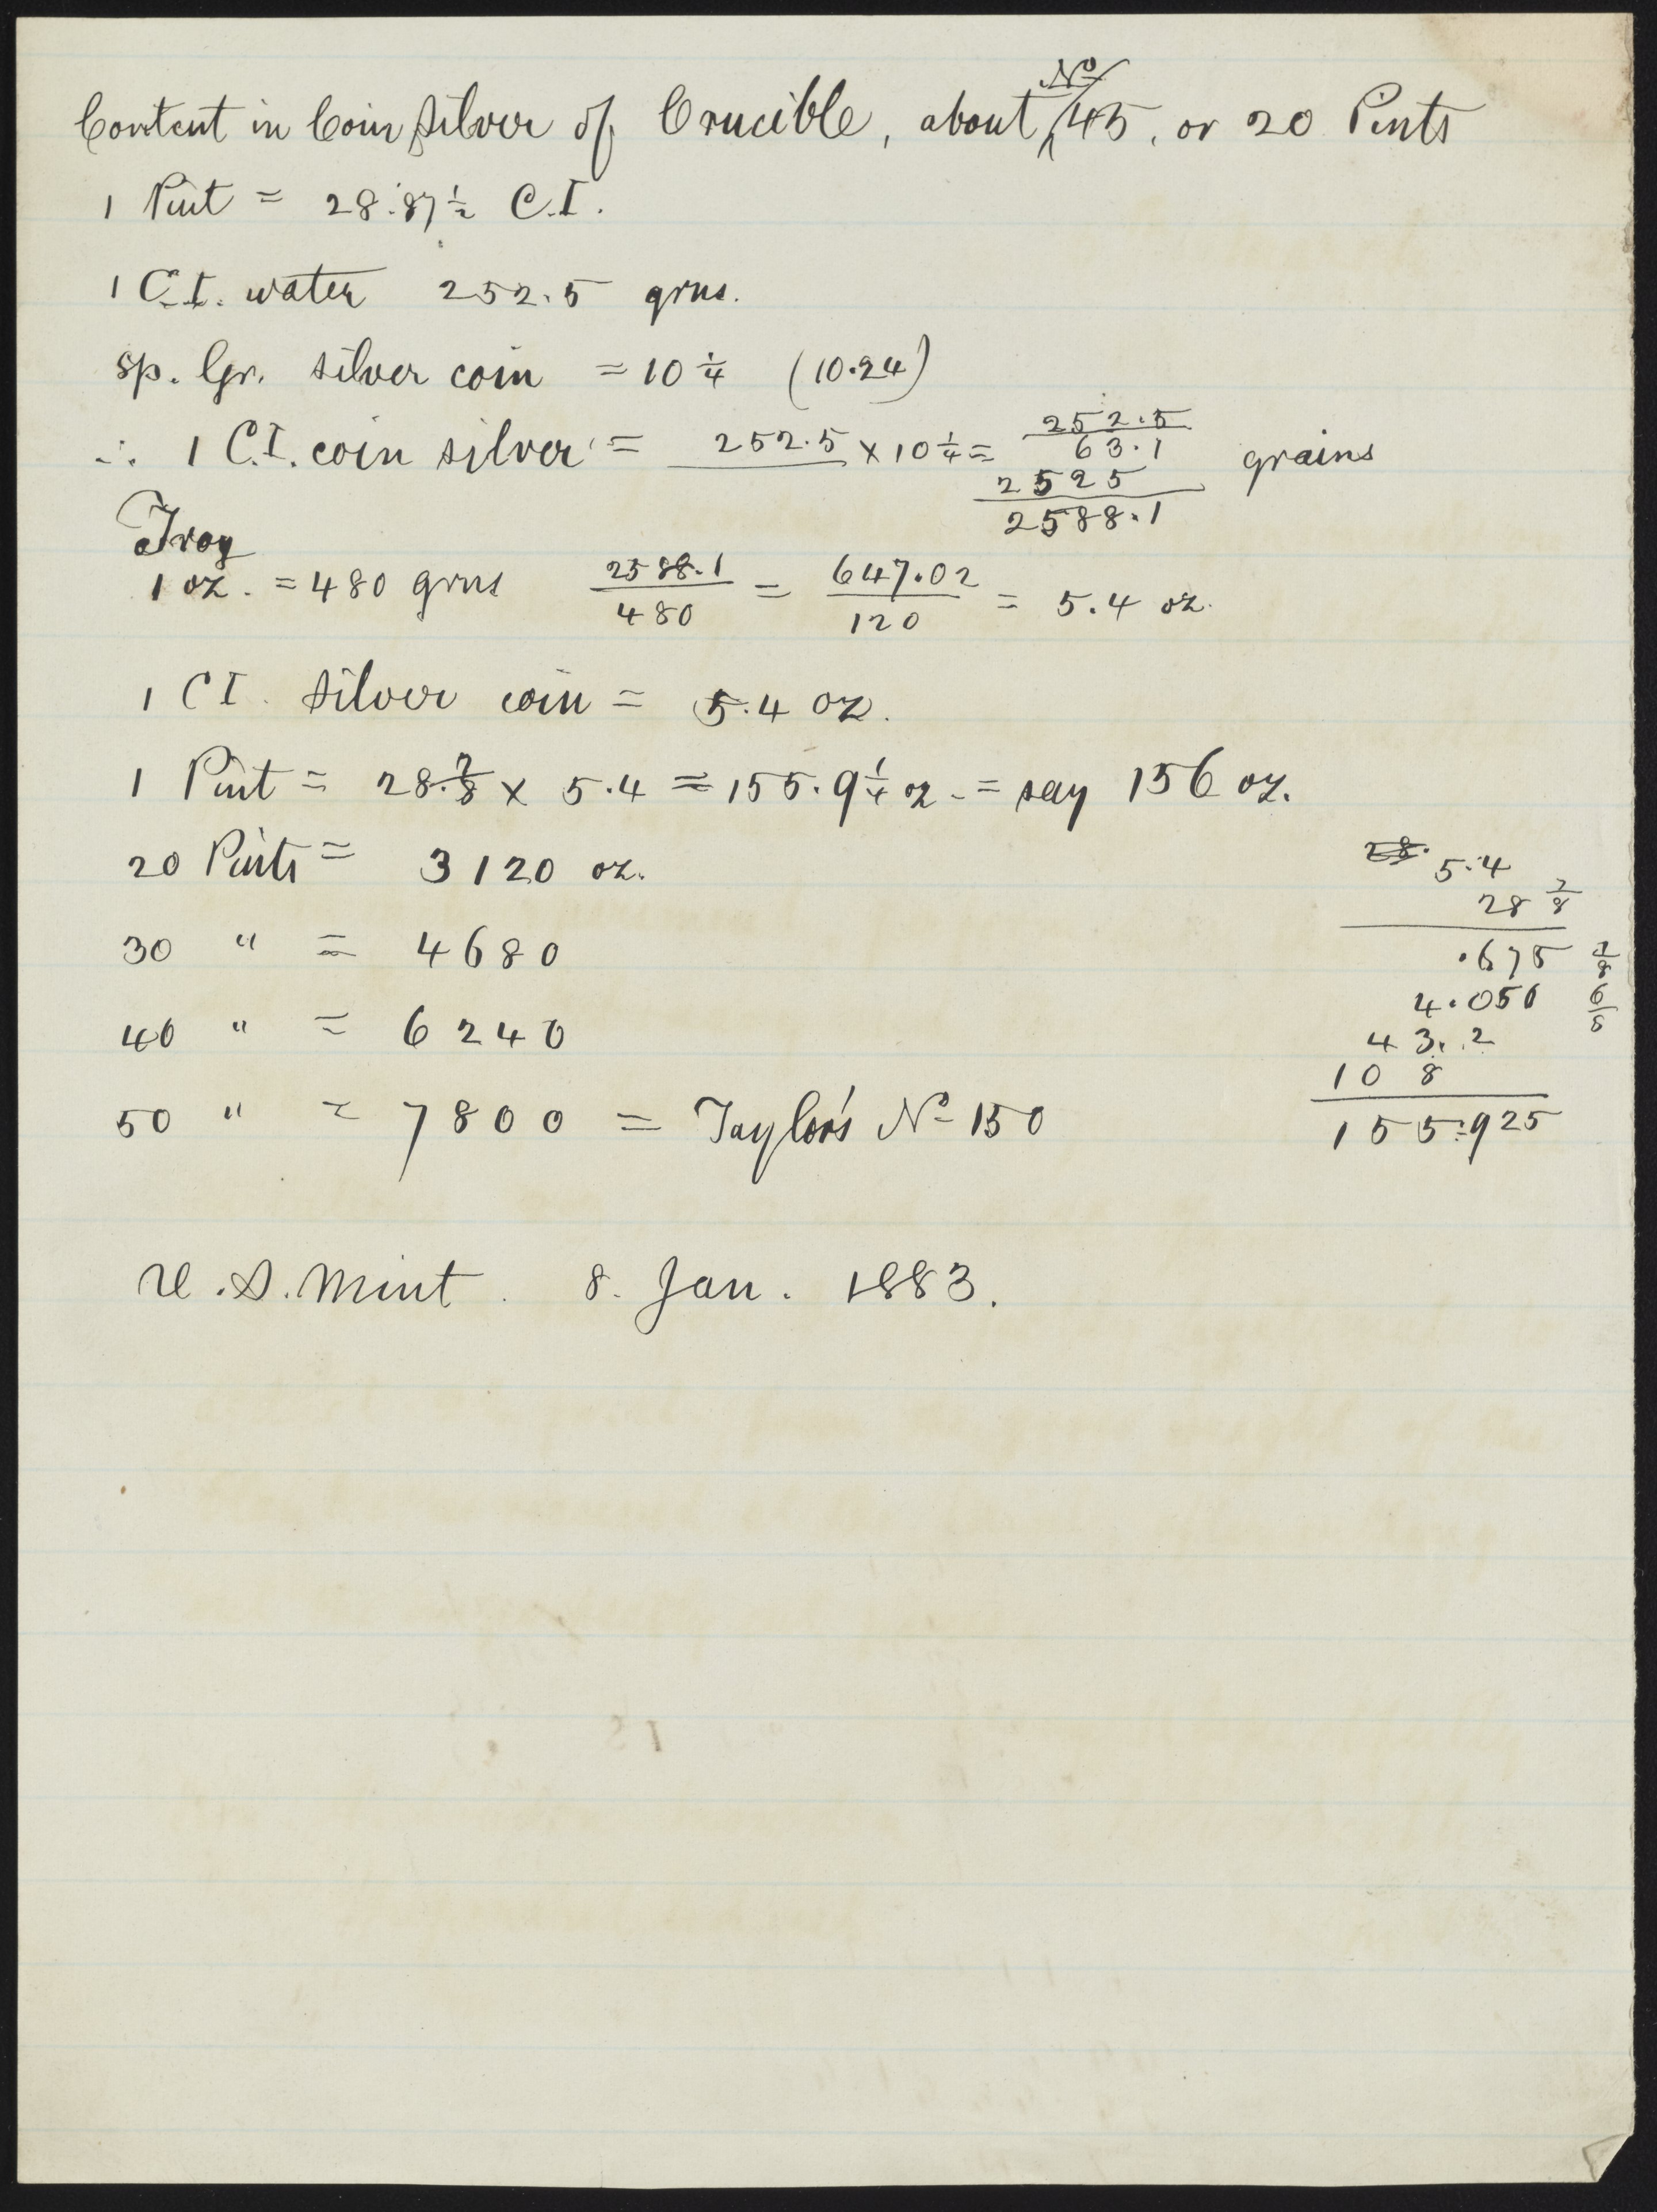 No
Content in Coin Silver of Crucible, about ^ 45, or 20 Pints
1 Pint = 28.87½ C.I.
1 C.I. water 252.5 grns.
Sp. Gr. silver coin = 10¼ (10.24)
∴ 1 C.I. coin silver = 252.5 × 10¼ = 252.5
63.1 grains
2525
2588.1
Troy
1 oz. = 480 grns 2588.1/480 = 647.02/120 = 5.4 oz.
1 CI. silver coin = 5.4 oz.
1 Pint = 28.⅞ × 5.4 = 155.9¼ oz. = say 156 oz.
20 Pints = 3120 oz.
30 " = 4680
40 " = 6240
50 " = 7800 = Taylor's No 150
28. 5.4
28⅞
.675 ⅛
4.050 6/8
43.2
108
155.925
U.S. Mint. 8. Jan. 1883.